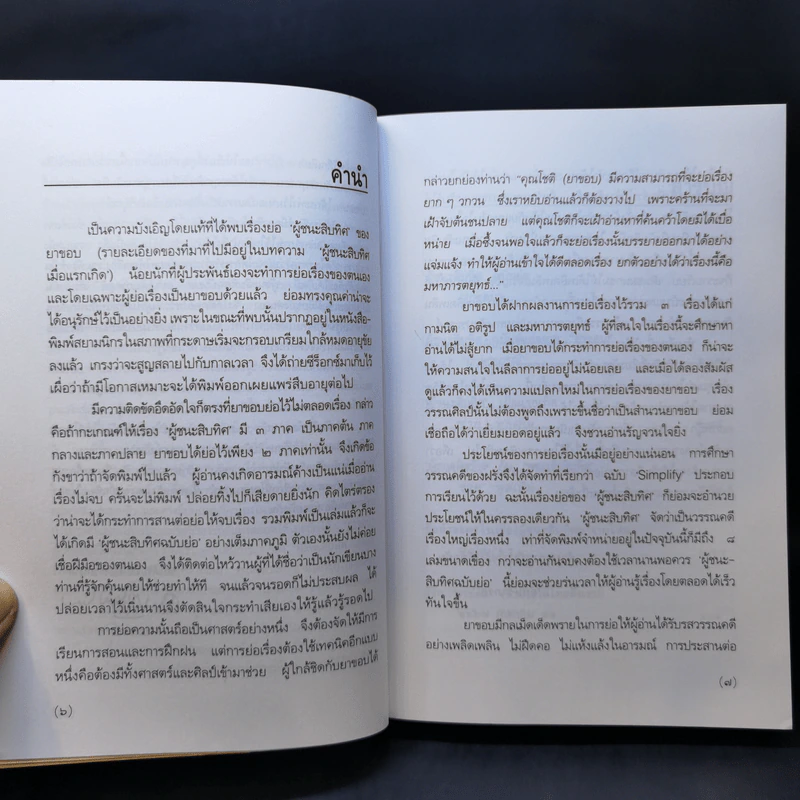 คำนำ
เป็นความบังเอิญโดยแท้ที่ได้พบเรื่องย่อ 'ผู้ชนะสิบทิศ' ของ
ยาขอบ (รายละเอียดของที่มาที่ไปมีอยู่ในบทความ 'ผู้ชนะสิบทิศ
เมื่อแรกเกิด') น้อยนักที่ผู้ประพันธ์เองจะทำการย่อเรื่องของตนเอง
และโดยเฉพาะผู้ย่อเรื่องเป็นยาขอบด้วยแล้ว ย่อมทรงคุณค่าน่าจะ
ได้อนุรักษ์ไว้เป็นอย่างยิ่ง เพราะในขณะที่พบนั้นปรากฏอยู่ในหนังสือ-
พิมพ์สยามนิกรในสภาพที่กระดาษเริ่มจะกรอบเกรียมใกล้หมดอายุขัย
ลงแล้ว เกรงว่าจะสูญสลายไปกับกาลเวลา จึงได้ถ่ายซีร็อกซ์มาเก็บไว้
เผื่อว่าถ้ามีโอกาสเหมาะจะได้พิมพ์ออกเผยแพร่สืบอายุต่อไป
มีความติดขัดอึดอัดใจก็ตรงที่ยาขอบย่อไว้ไม่ตลอดเรื่อง กล่าว
คือถ้ากะเกณฑ์ให้เรื่อง 'ผู้ชนะสิบทิศ' มี ๓ ภาค เป็นภาคต้น ภาค
กลางและภาคปลาย ยาขอบได้ย่อไว้เพียง ๒ ภาคเท่านั้น จึงเกิดข้อ
กังขาว่าถ้าจัดพิมพ์ไปแล้ว ผู้อ่านคงเกิดอารมณ์ค้างเป็นแน่เมื่ออ่าน
เรื่องไม่จบ ครั้นจะไม่พิมพ์ ปล่อยทิ้งไปก็เสียดายยิ่งนัก คิดไตร่ตรอง
ว่าน่าจะได้กระทำการสานต่อย่อให้จบเรื่อง รวมพิมพ์เป็นเล่มแล้วก็จะ
ได้เกิดมี 'ผู้ชนะสิบทิศฉบับย่อ' อย่างเต็มภาคภูมิ ตัวเองนั้นยังไม่ค่อย
เชื่อฝีมือของตนเอง จึงได้ติดต่อไหว้วานผู้ที่ได้ชื่อว่าเป็นนักเขียนบาง
ท่านที่รู้จักคุ้นเคยให้ช่วยทำให้ที จนแล้วจนรอดก็ไม่ประสบผล ได้
ปล่อยเวลาไว้เนิ่นนานจึงตัดสินใจกระทำเสียเองให้รู้แล้วรู้รอดไป
การย่อความนั้นถือเป็นศาสตร์อย่างหนึ่ง จึงต้องจัดให้มีการ
เรียนการสอนและการฝึกฝน แต่การย่อเรื่องต้องใช้เทคนิคอีกแบบ
หนึ่งคือต้องมีทั้งศาสตร์และศิลป์เข้ามาช่วย ผู้ใกล้ชิดกับยาขอบได้
(๖)
กล่าวยกย่องท่านว่า "คุณโชติ (ยาขอบ) มีความสามารถที่จะย่อเรื่อง
ยาก ๆ วกวน ซึ่งเราหยิบอ่านแล้วก็ต้องวางไป เพราะคร้านที่จะมา
เฝ้าจับต้นชนปลาย แต่คุณโชติก็จะเฝ้าอ่านหาที่ค้นคว้าโดยมิได้เบื่อ
หน่าย เมื่อซึ้งจนพอใจแล้วก็จะย่อเรื่องนั้นบรรยายออกมาได้อย่าง
แจ่มแจ้ง ทำให้ผู้อ่านเข้าใจได้ดีตลอดเรื่อง ยกตัวอย่างได้ว่าเรื่องนี้คือ
มหาภารตยุทธ์..."
ยาขอบได้ฝากผลงานการย่อเรื่องไว้รวม ๓ เรื่องได้แก่
กามนิต อติรูป และมหาภารตยุทธ์ ผู้ที่สนใจในเรื่องนี้จะศึกษาหา
อ่านได้ไม่สู้ยาก เมื่อยาขอบได้กระทำการย่อเรื่องของตนเอง ก็น่าจะ
ให้ความสนใจในลีลาการย่ออยู่ไม่น้อยเลย และเมื่อได้ลองสัมผัส
ดูแล้วก็คงได้เห็นความแปลกใหม่ในการย่อเรื่องของยาขอบ เรื่อง
วรรณศิลป์นั้นไม่ต้องพูดถึงเพราะขึ้นชื่อว่าเป็นสำนวนยาขอบ ย่อม
เชื่อถือได้ว่าเยี่ยมยอดอยู่แล้ว จึงชวนอ่านรัญจวนใจยิ่ง
ประโยชน์ของการย่อเรื่องนั้นมีอยู่อย่างแน่นอน การศึกษา
วรรณคดีของฝรั่งจึงได้จัดทำที่เรียกว่า ฉบับ 'Simplify' ประกอบ
การเรียนไว้ด้วย ฉะนั้นเรื่องย่อของ 'ผู้ชนะสิบทิศ' ก็ย่อมจะอำนวย
ประโยชน์ให้ในครรลองเดียวกัน 'ผู้ชนะสิบทิศ' จัดว่าเป็นวรรณคดี
เรื่องใหญ่เรื่องหนึ่ง เท่าที่จัดพิมพ์จำหน่ายอยู่ในปัจจุบันนี้ก็มีถึง ๘
เล่มขนาดเขื่อง กว่าจะอ่านกันจบคงต้องใช้เวลานานพอควร 'ผู้ชนะ-
สิบทิศฉบับย่อ' นี้ย่อมจะช่วยร่นเวลาให้ผู้อ่านรู้เรื่องโดยตลอดได้เร็ว
ทันใจขึ้น
ยาขอบมีกลเม็ดเด็ดพรายในการย่อให้ผู้อ่านได้รับรสวรรณคดี
อย่างเพลิดเพลิน ไม่ฝืดคอ ไม่แห้งแล้งในอารมณ์ การประสานต่อ
(๗)